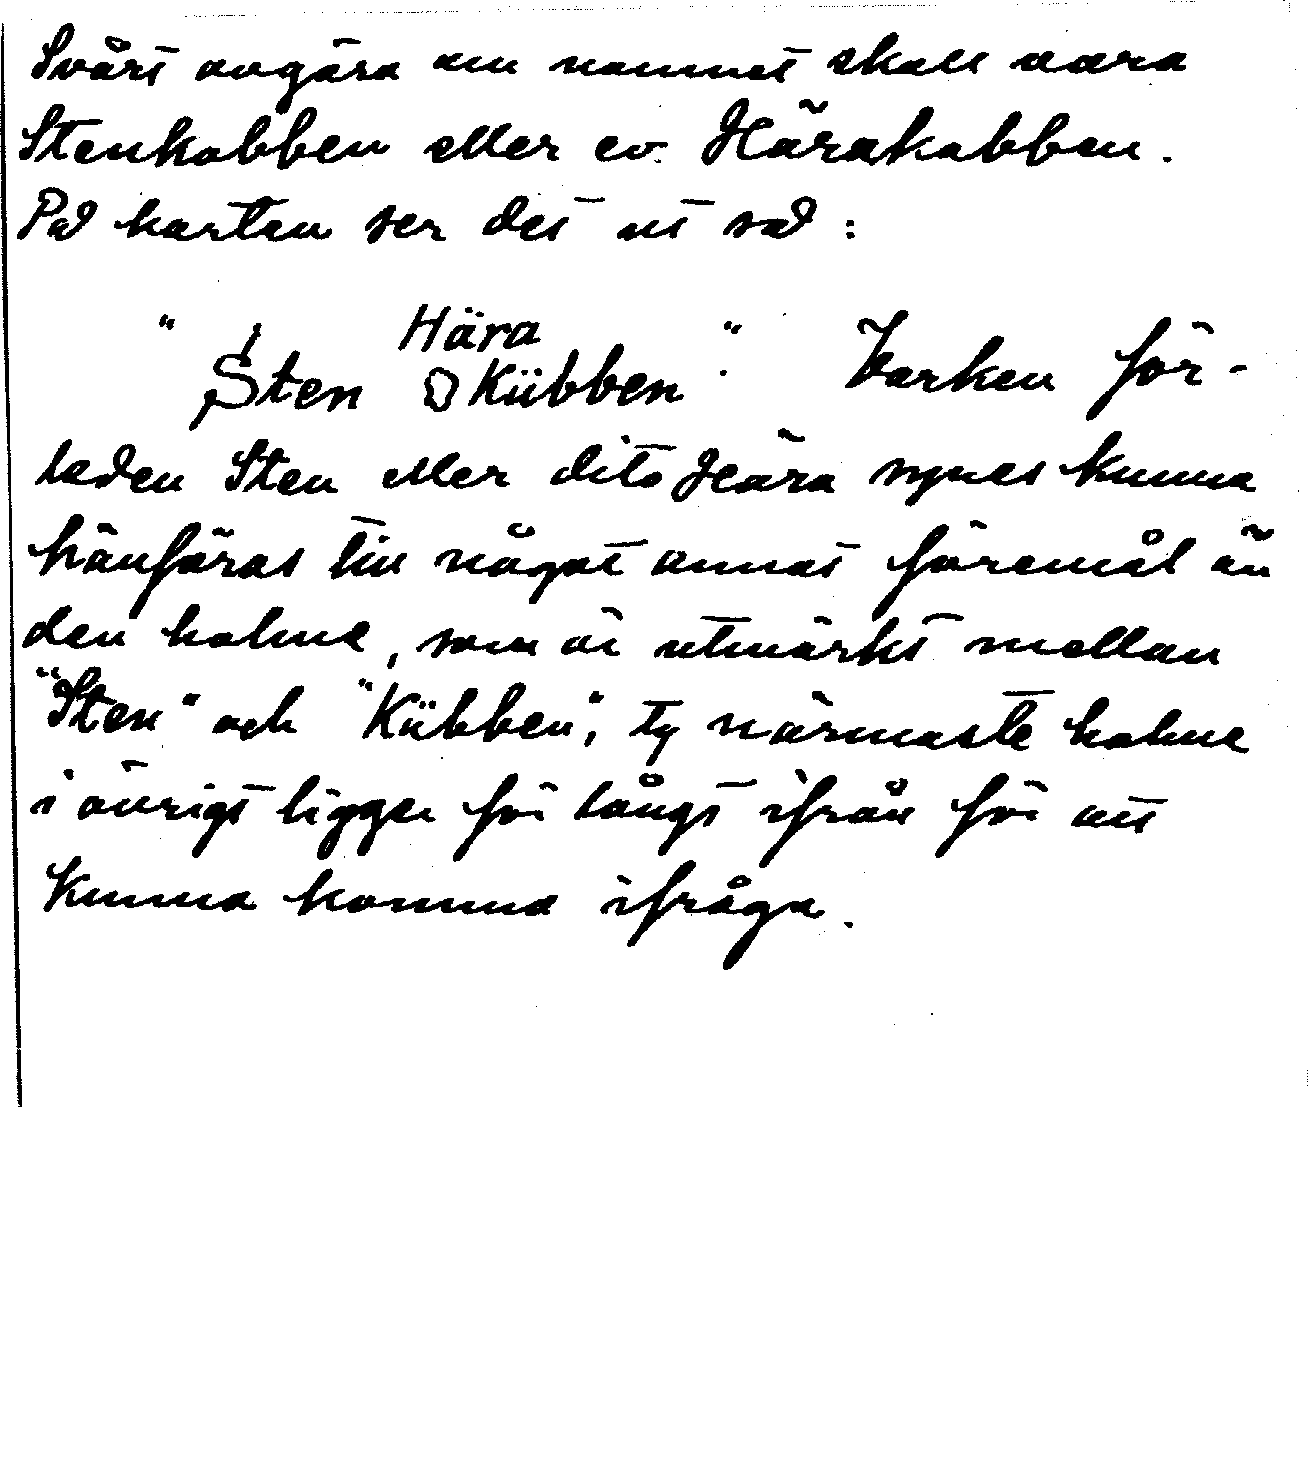 Svårt avgöra om namnet skall vara
Stenkobben eller ev. Härakobben.
På kartan ser det ut så:
" Hära "
Sten Kübben . Varken för-
leden Sten eller dito Hära synes kunna
hänföras till något annat föremål än
den holme, som är utmärkt mellan
"Sten" och "Kübben", ty närmaste holme
i övrigt ligger för långt ifrån för att
kunna komma ifråga.